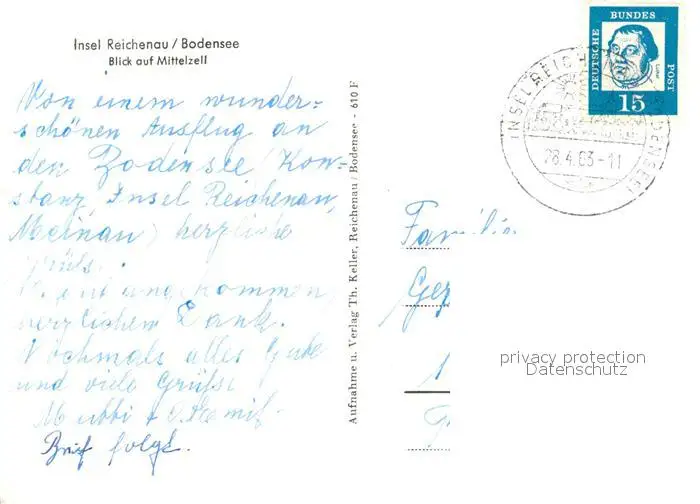 Insel Reichenau / Bodensee
Blick auf Mittelzell
Von einem wunder=
schönen Ausflug an
den Bodensee (Kon-
stanz, Insel Reichenau,
Meinau) herzliche
Grüße.
gut angekommen,
herzlichen Dank.
Nochmals alles Gute
und viele Grüße
Brief folgt.
Aufnahme u. Verlag Th. Keller, Reichenau / Bodensee - 610 F
DEUTSCHE BUNDES POST
15
INSEL REICHENAU (BODENSEE)
28.4.63-11
Familie
privacy protection
Datenschutz